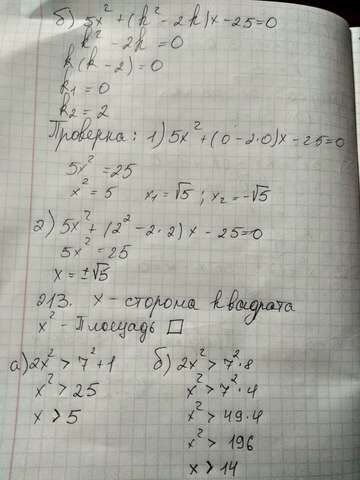 б) 5x² + (k² - 2k)x - 25 = 0
k² - 2k = 0
k(k - 2) = 0
k₁ = 0
k₂ = 2
Проверка: 1) 5x² + (0 - 2·0)x - 25 = 0
5x² = 25
x² = 5 x₁ = √5 ; x₂ = -√5
2) 5x² + (2² - 2·2)x - 25 = 0
5x² = 25
x = ±√5
213. x - сторона квадрата
x² - Площадь □
а) 2x² > 7² + 1
x² > 25
x > 5
б) 2x² > 7² · 8
x² > 7² · 4
x² > 49 · 4
x² > 196
x > 14